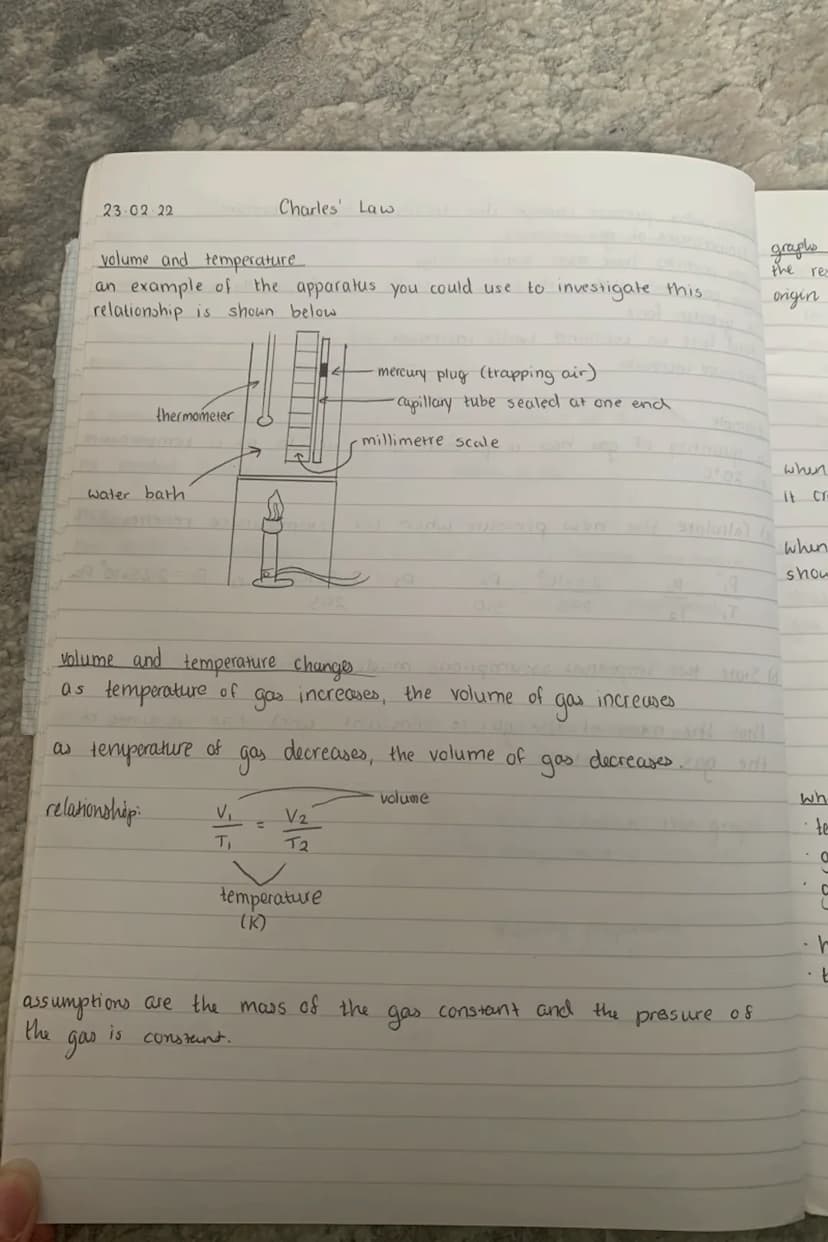 23.02.22 Charles' Law
volume and temperature
an example of the apparatus you could use to investigate this
relationship is shown below
mercury plug (trapping air)
capillary tube sealed at one end
thermometer
millimetre scale
water bath
volume and temperature changes
as temperature of gas increases, the volume of gas increases
as temperature of gas decreases, the volume of gas decreases.
relationship: V₁/T₁ = V₂/T₂
volume
temperature
(K)
assumptions are the mass of the gas constant and the pressure of
the gas is constant.
graphs
the
origin
when
it
when